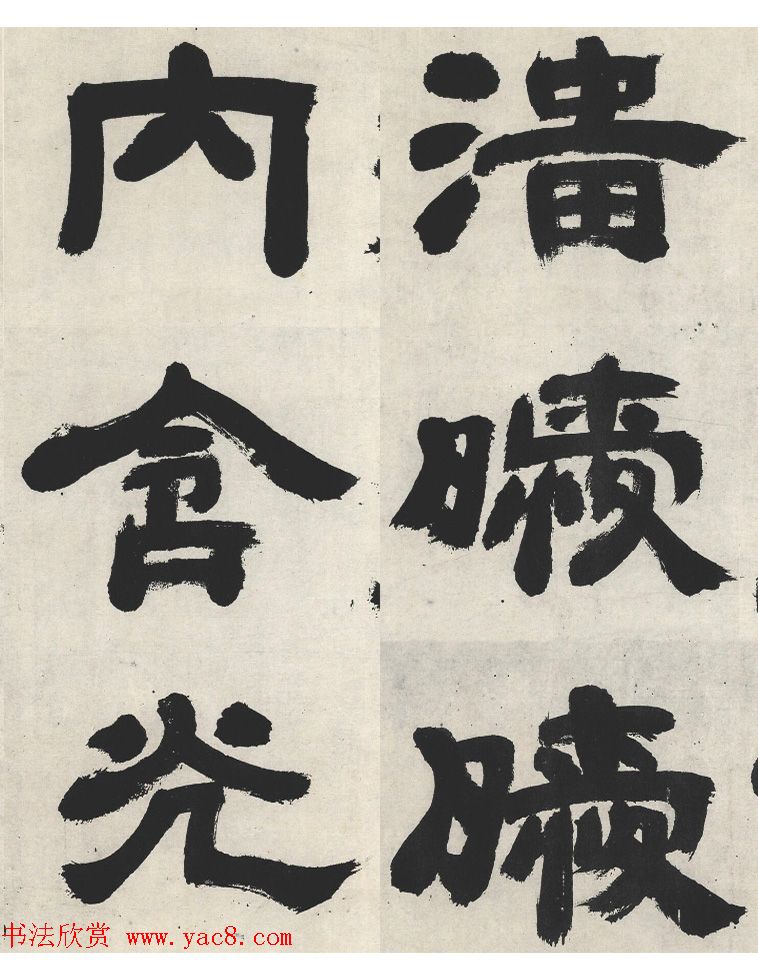 淄曖曖
內含光
书法欣赏 www.yac8.com